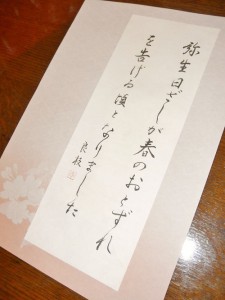 弥生日ざしが春のおとずれ
を告げる頃となりました